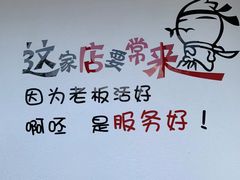 这家店要常来
因为老板活好
啊呸 是服务好！